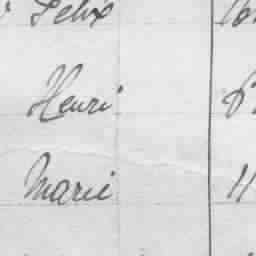 Felix
Henri
Marie 11